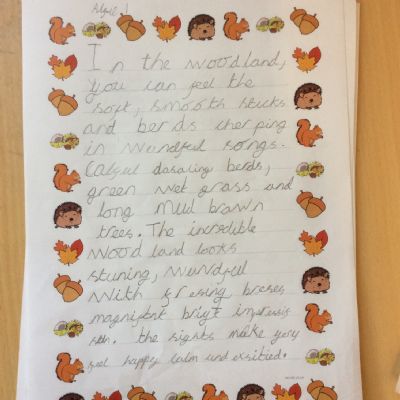 Abigail
In the woodland,
you can feel the
soft, smooth sticks
and berds cherping
in wundful songs.
Calful dasaling berds,
green wet grass and
long mud brawn
trees. The incredible
wood land looks
stuning, wundful
with freesing breses
magnifisnt briyt impressiv
. the sights make yoy
feel happy calm und exsitied.